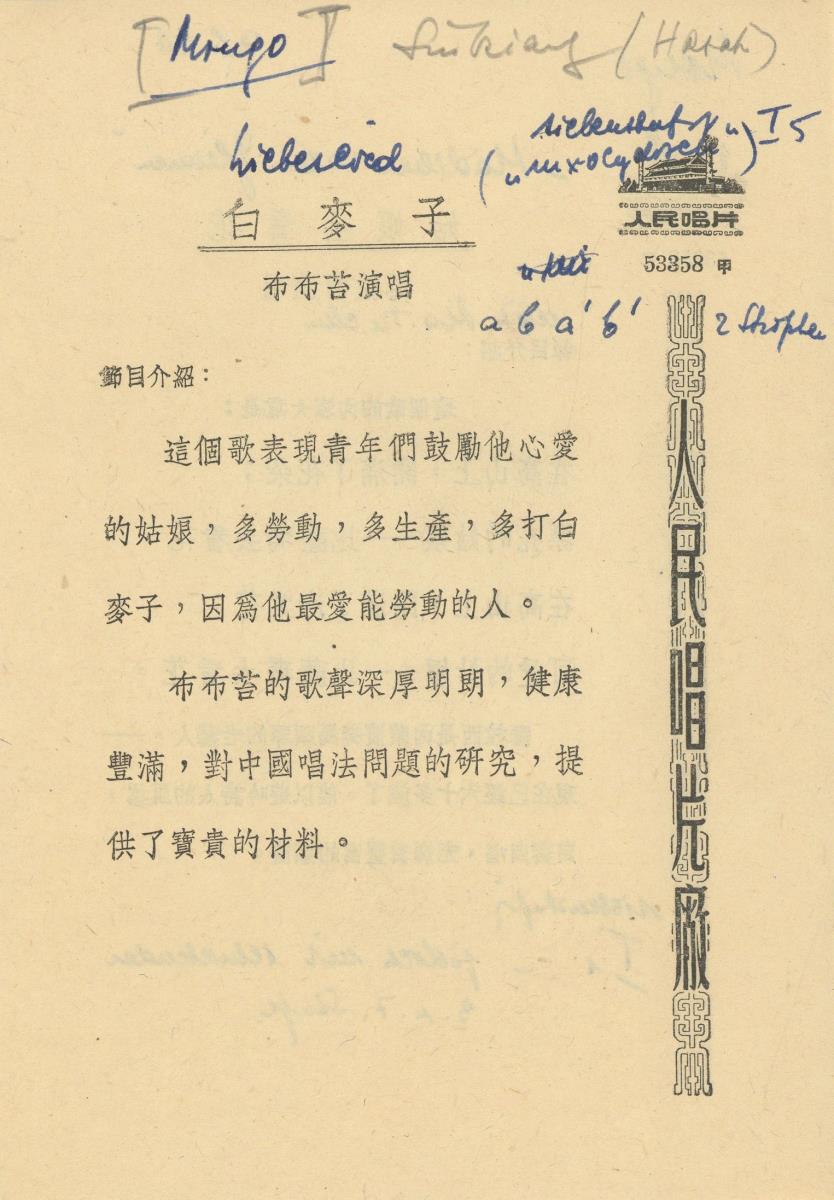 [Mongo] Sinkiang (Hasak)
siebenstufig
Liebeslied
„ I 5
白麥子
人民唱片
布布苔演唱
53358 甲
a b a' b' 2 Strophen
節目介紹：
這個歌表現青年們鼓勵他心愛
的姑娘，多勞動，多生產，多打白
麥子，因爲他最愛能勞動的人。
布布苔的歌聲深厚明朗，健康
豐滿，對中國唱法問題的研究，提
供了寶貴的材料。
人民唱片廠